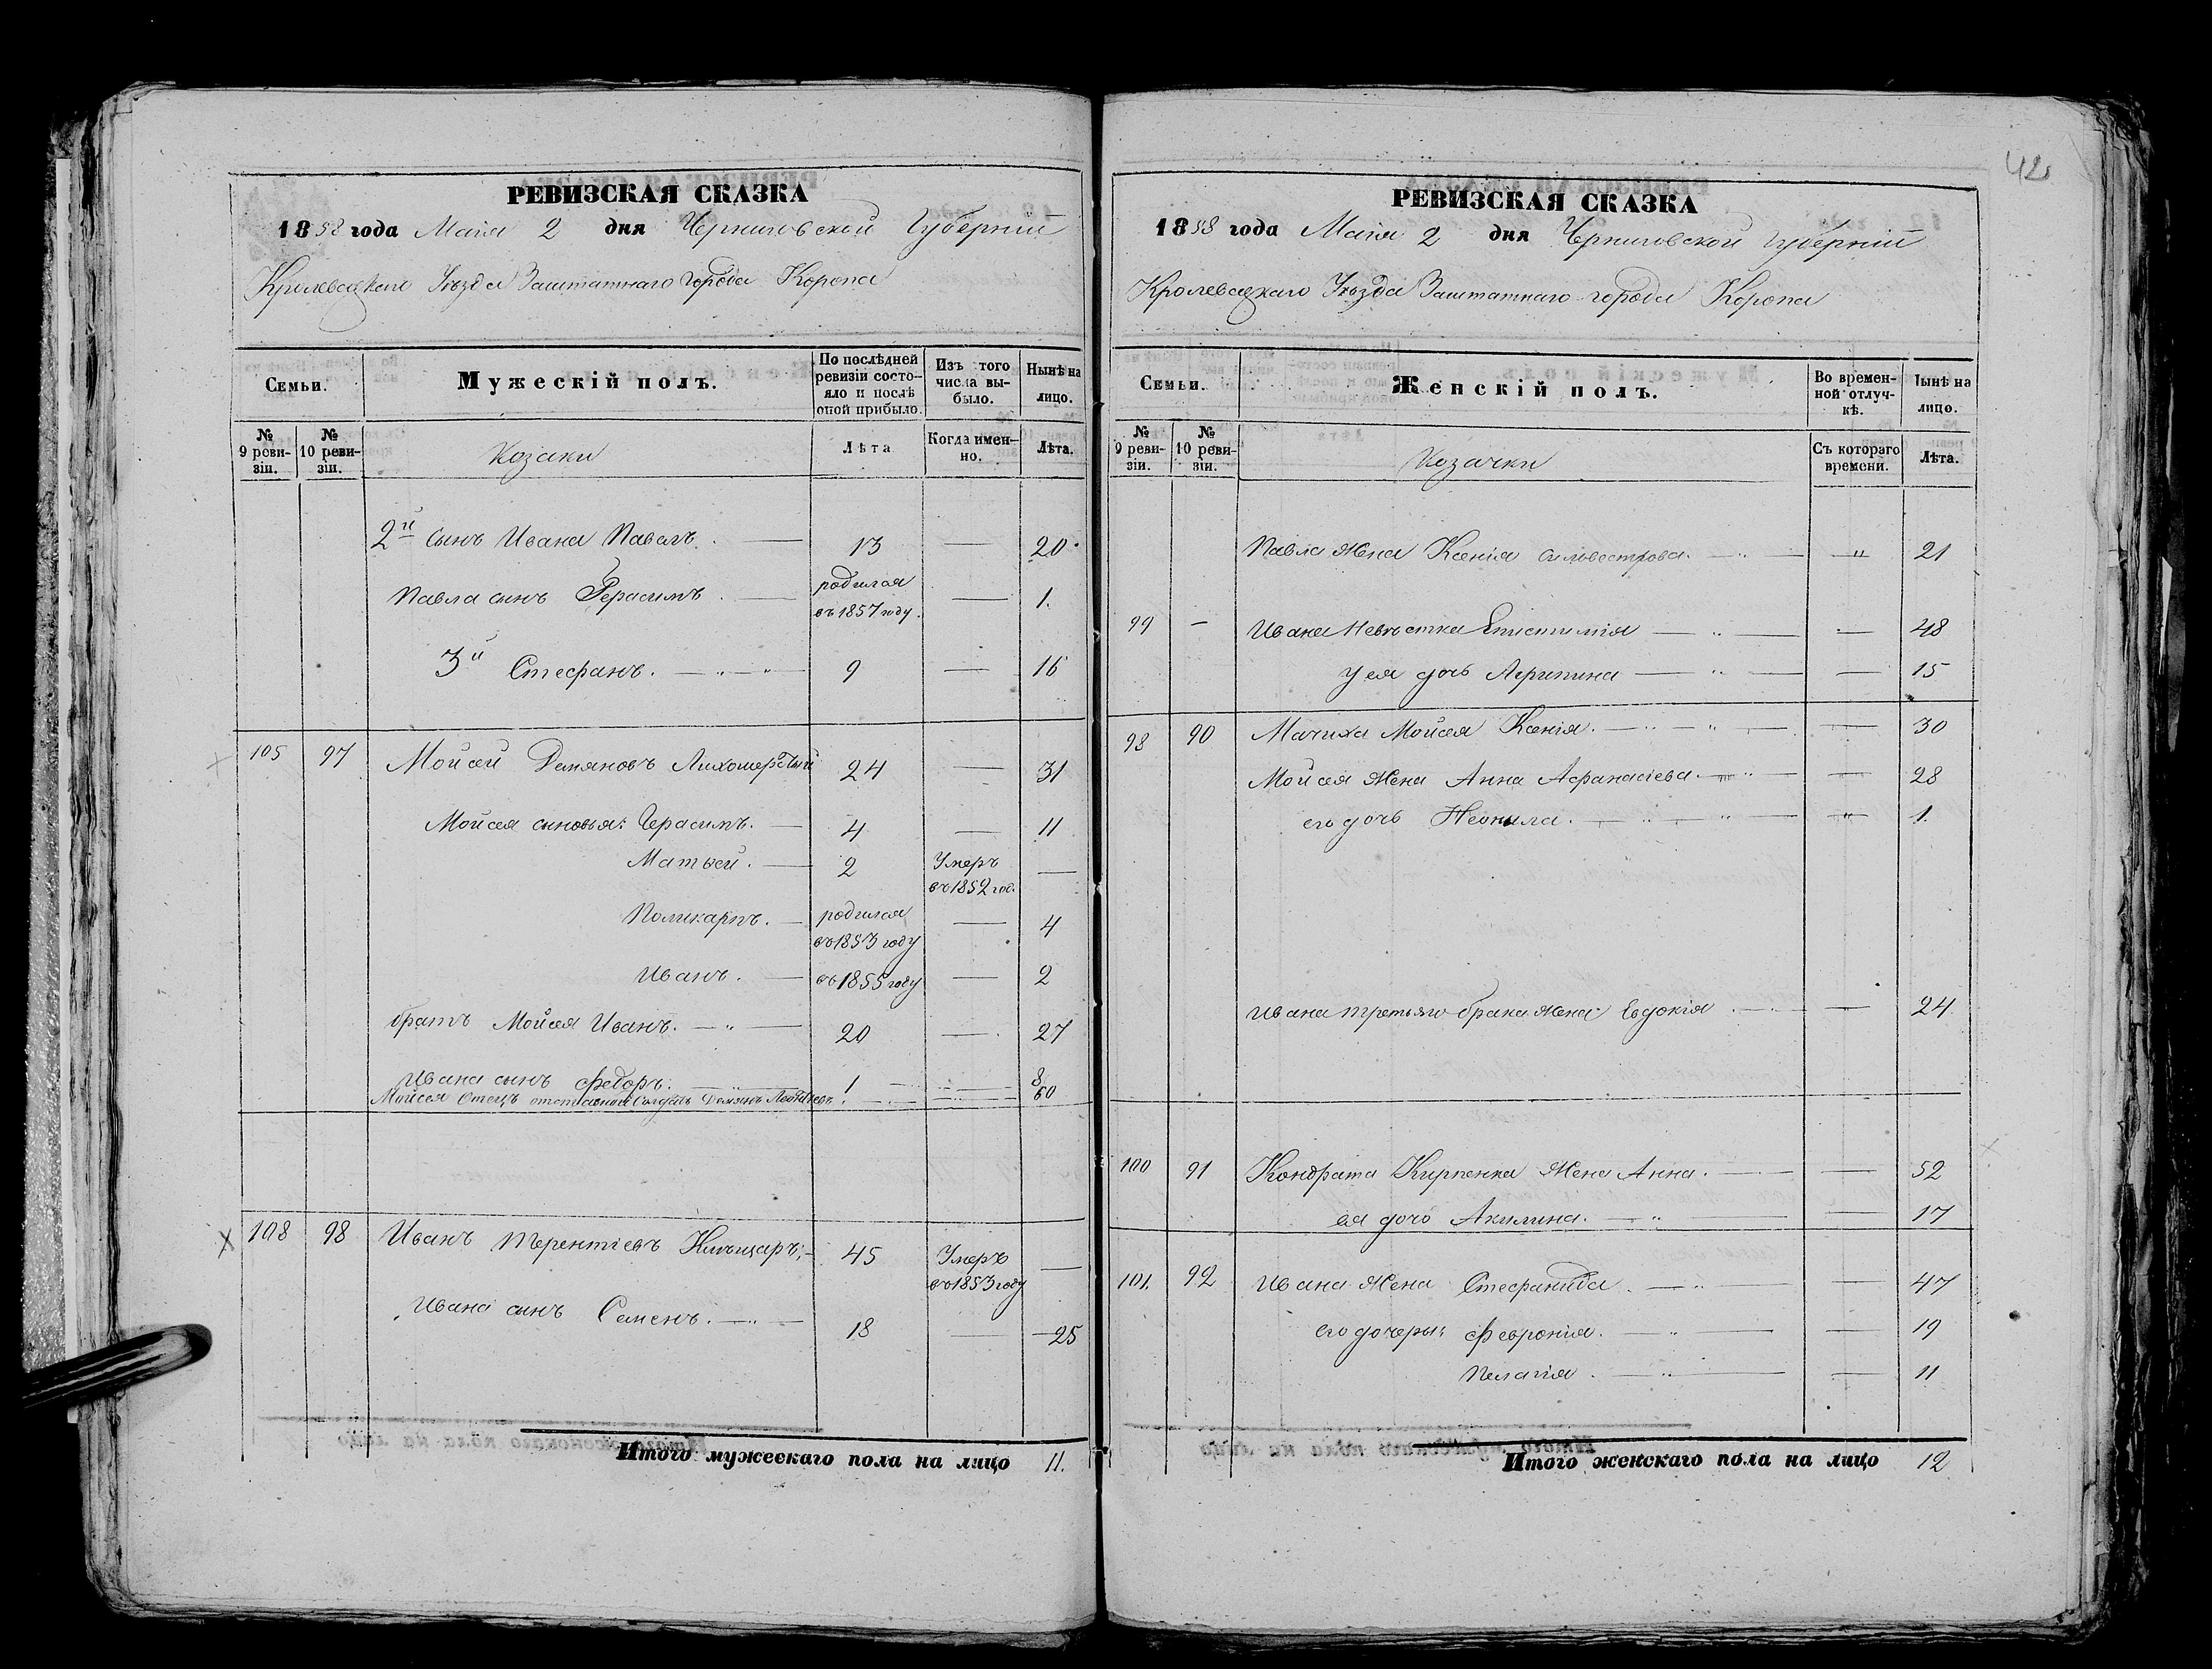 РЕВИЗСКАЯ СКАЗКА
1858 года Маия 2 дня Черниговской Губерніи
Кролевецкаго Уѣзда Заштатнаго города Коропа
Семьи.
Мужескій полъ.
По послѣдней ревизіи состо-
яло и послѣ
оной прибыло.
Изъ того
числа вы-
было.
Нынѣ на
лицо.
№
9 реви-
зіи.
№
10 реви-
зіи.
Козаки
Лѣта
Когда имен-
но.
Лѣта.
2й сынъ Ивана Павелъ. 13 — 20
Павла сынъ Герасимъ. родился
въ 1857 году. — 1.
3й Стефанъ. 9 — 16
105 97 Мойсей Демяновъ 24 — 31
Мойсея сыновья: Герасимъ. 4 — 11
Матвей. 2 Умеръ
въ 1852 год. —
Поликарпъ. родился
въ 1853 году — 4
Иванъ. въ 1855 году — 2
братъ Мойсея Иванъ. 20 — 27
Ивана сынъ Федоръ. 1 — 8
Мойсея Отецъ отставной Солдатъ Демянъ — 60
108 98 Иванъ Терентіевъ 45 Умеръ
въ 1853 году —
Ивана сынъ Семенъ. 18 — 25
Итого мужескаго пола на лицо 11.
42
РЕВИЗСКАЯ СКАЗКА
1858 года Маия 2 дня Черниговской Губерніи
Кролевецкаго Уѣзда Заштатнаго города Коропа
Семьи.
Женскій полъ.
Во времен-
ной отлуч-
кѣ.
Нынѣ на
лицо.
№
9 реви-
зіи.
№
10 реви-
зіи.
Козачки
Съ котораго
времени.
Лѣта.
Павла жена Ксенія Сильвестрова. — 21
99 — Ивана Невѣстка Епистимія — 48
у ея дочь Агрипина — 15
98 90 Мачиха Мойсея Ксенія. — 30
Мойсея жена Анна Афанасіева. — 28
его дочь Неонила. — 1.
Ивана третьяго брака жена Евдокія — 24.
100 91 Кондрата Кирпенка жена Анна. — 52
ея дочь Акилина. — 17
101. 92 Ивана жена Стефанида. — 47
его дочеры: Февронія. — 19
Пелагія. — 11
Итого женскаго пола на лицо 12